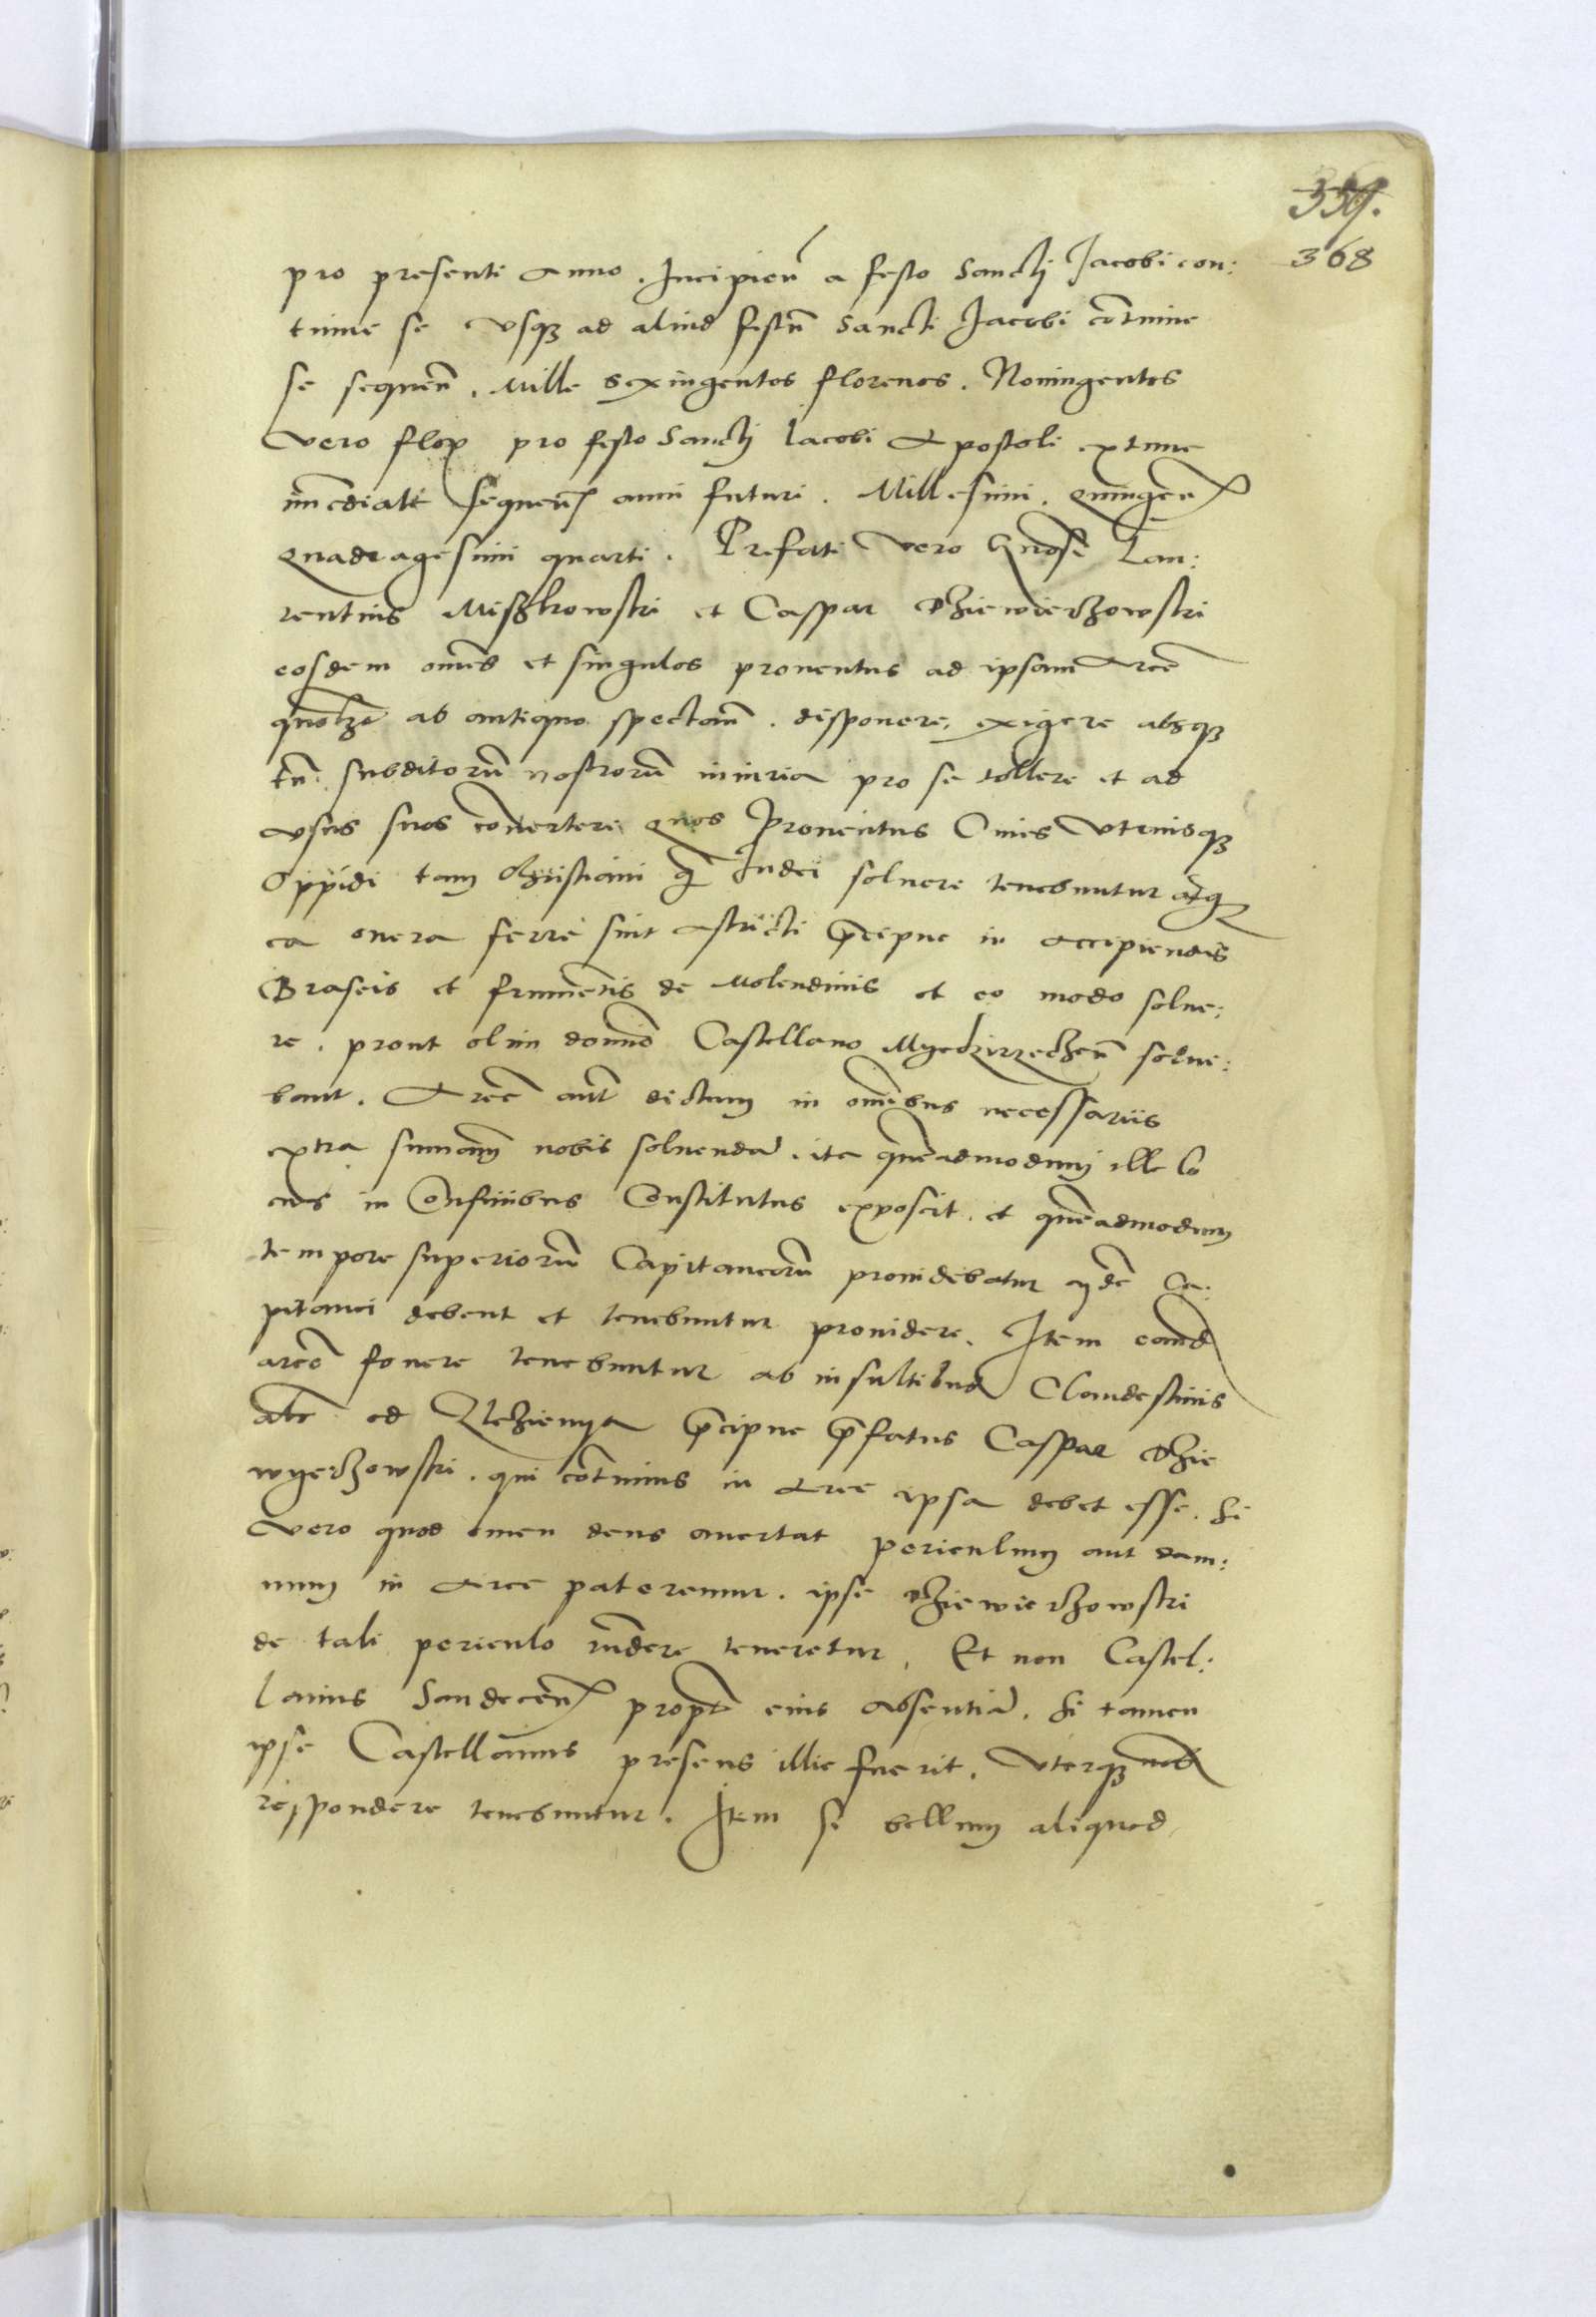 359.
368
pro presenti Anno. Incipien̄ a festo Sancti Jacobi con:
tinue se vsqꝫ ad aliud festū Sancti Jacobi cōtinue
se sequen̄. Mille sexingentos florenos. Noningentos
vero floꝝ pro festo Sancti Iacobi Apostoli extunc
im̄ediate sequen̄ anni futuri. Millesimi. quingen̄
quadragesimi quarti. Prefati vero Gn̄osi Lau:
rentius Misszkowski et Caspar Dhiewierzowski
eosdem om̄es et singulos prouentus ad ipsam Arcē
ab antiquo spectan̄. disponere, exigere absqꝫ
tn̄. subditorū nostrorū iniuria pro se tollere et ad
vsus suos cōuertere quos prouentus Ciues vtriusqꝫ
Oppidi tam Christiani q̄ Iudei soluere tenebuntur atqꝫ
ea onera ferre sint Astricti p̄cipue in accipiendis
Braseis et frumētis de Molendinis et eo modo solue:
re. prout olim domino Castellano Myedzirzeczen̄ solue:
bant. Arcē aūt dictam in om̄ibus necessariis
extra summam nobis soluendā. ita quēadmodum ille lo
cus in Confinibus Constitutus exposcit. et quēadmodum
tempore superiorū Capitaneorū prouidebatur ijdē Ca:
pitanei debent et tenebuntur prouidere. Item eand
arcē fouere tenebuntur ab insultibus Clandestinis
p̄cipue p̄fatus Caspar Dhie
wyerzowski. qui cōtinuus in Arce ipsa debet esse. Si
vero quod omen deus auertat periculum aut dam:
num in Arce pateremur. ipse Dhiewierzowski
de tali periculo rn̄dere teneretur. Et non Castel:
lanus Sandecen̄ propt̄ eius absentiā. Si tamen
ipse Castellanus presens illic fuerit. vterqꝫ nob
respondere tenebuntur. Item si bellum aliquod